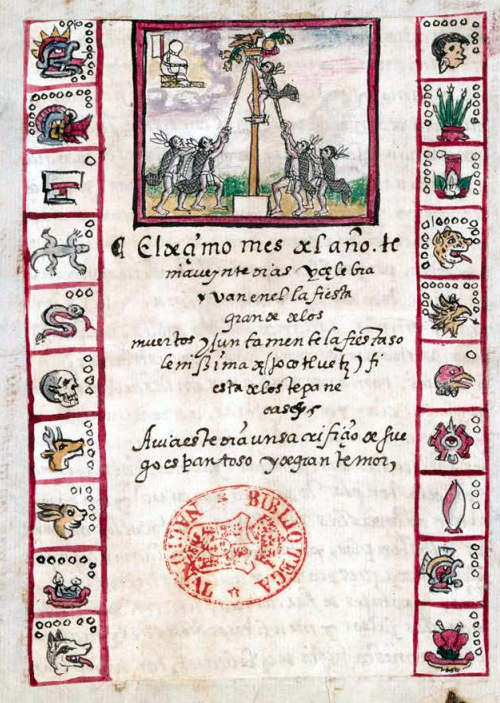 ¶ El deçimo mes del año. te
nia veynte dias y çelebra
van en el la fiesta
grande de los
muertos y juntamente la fiesta so
lenissima de (xocotl uetz) fi
esta de los tepane
cas
Avia este dia un sacrifiçio de fue
go espantoso y de gran temor,
BIBLIOTECA NACIONAL